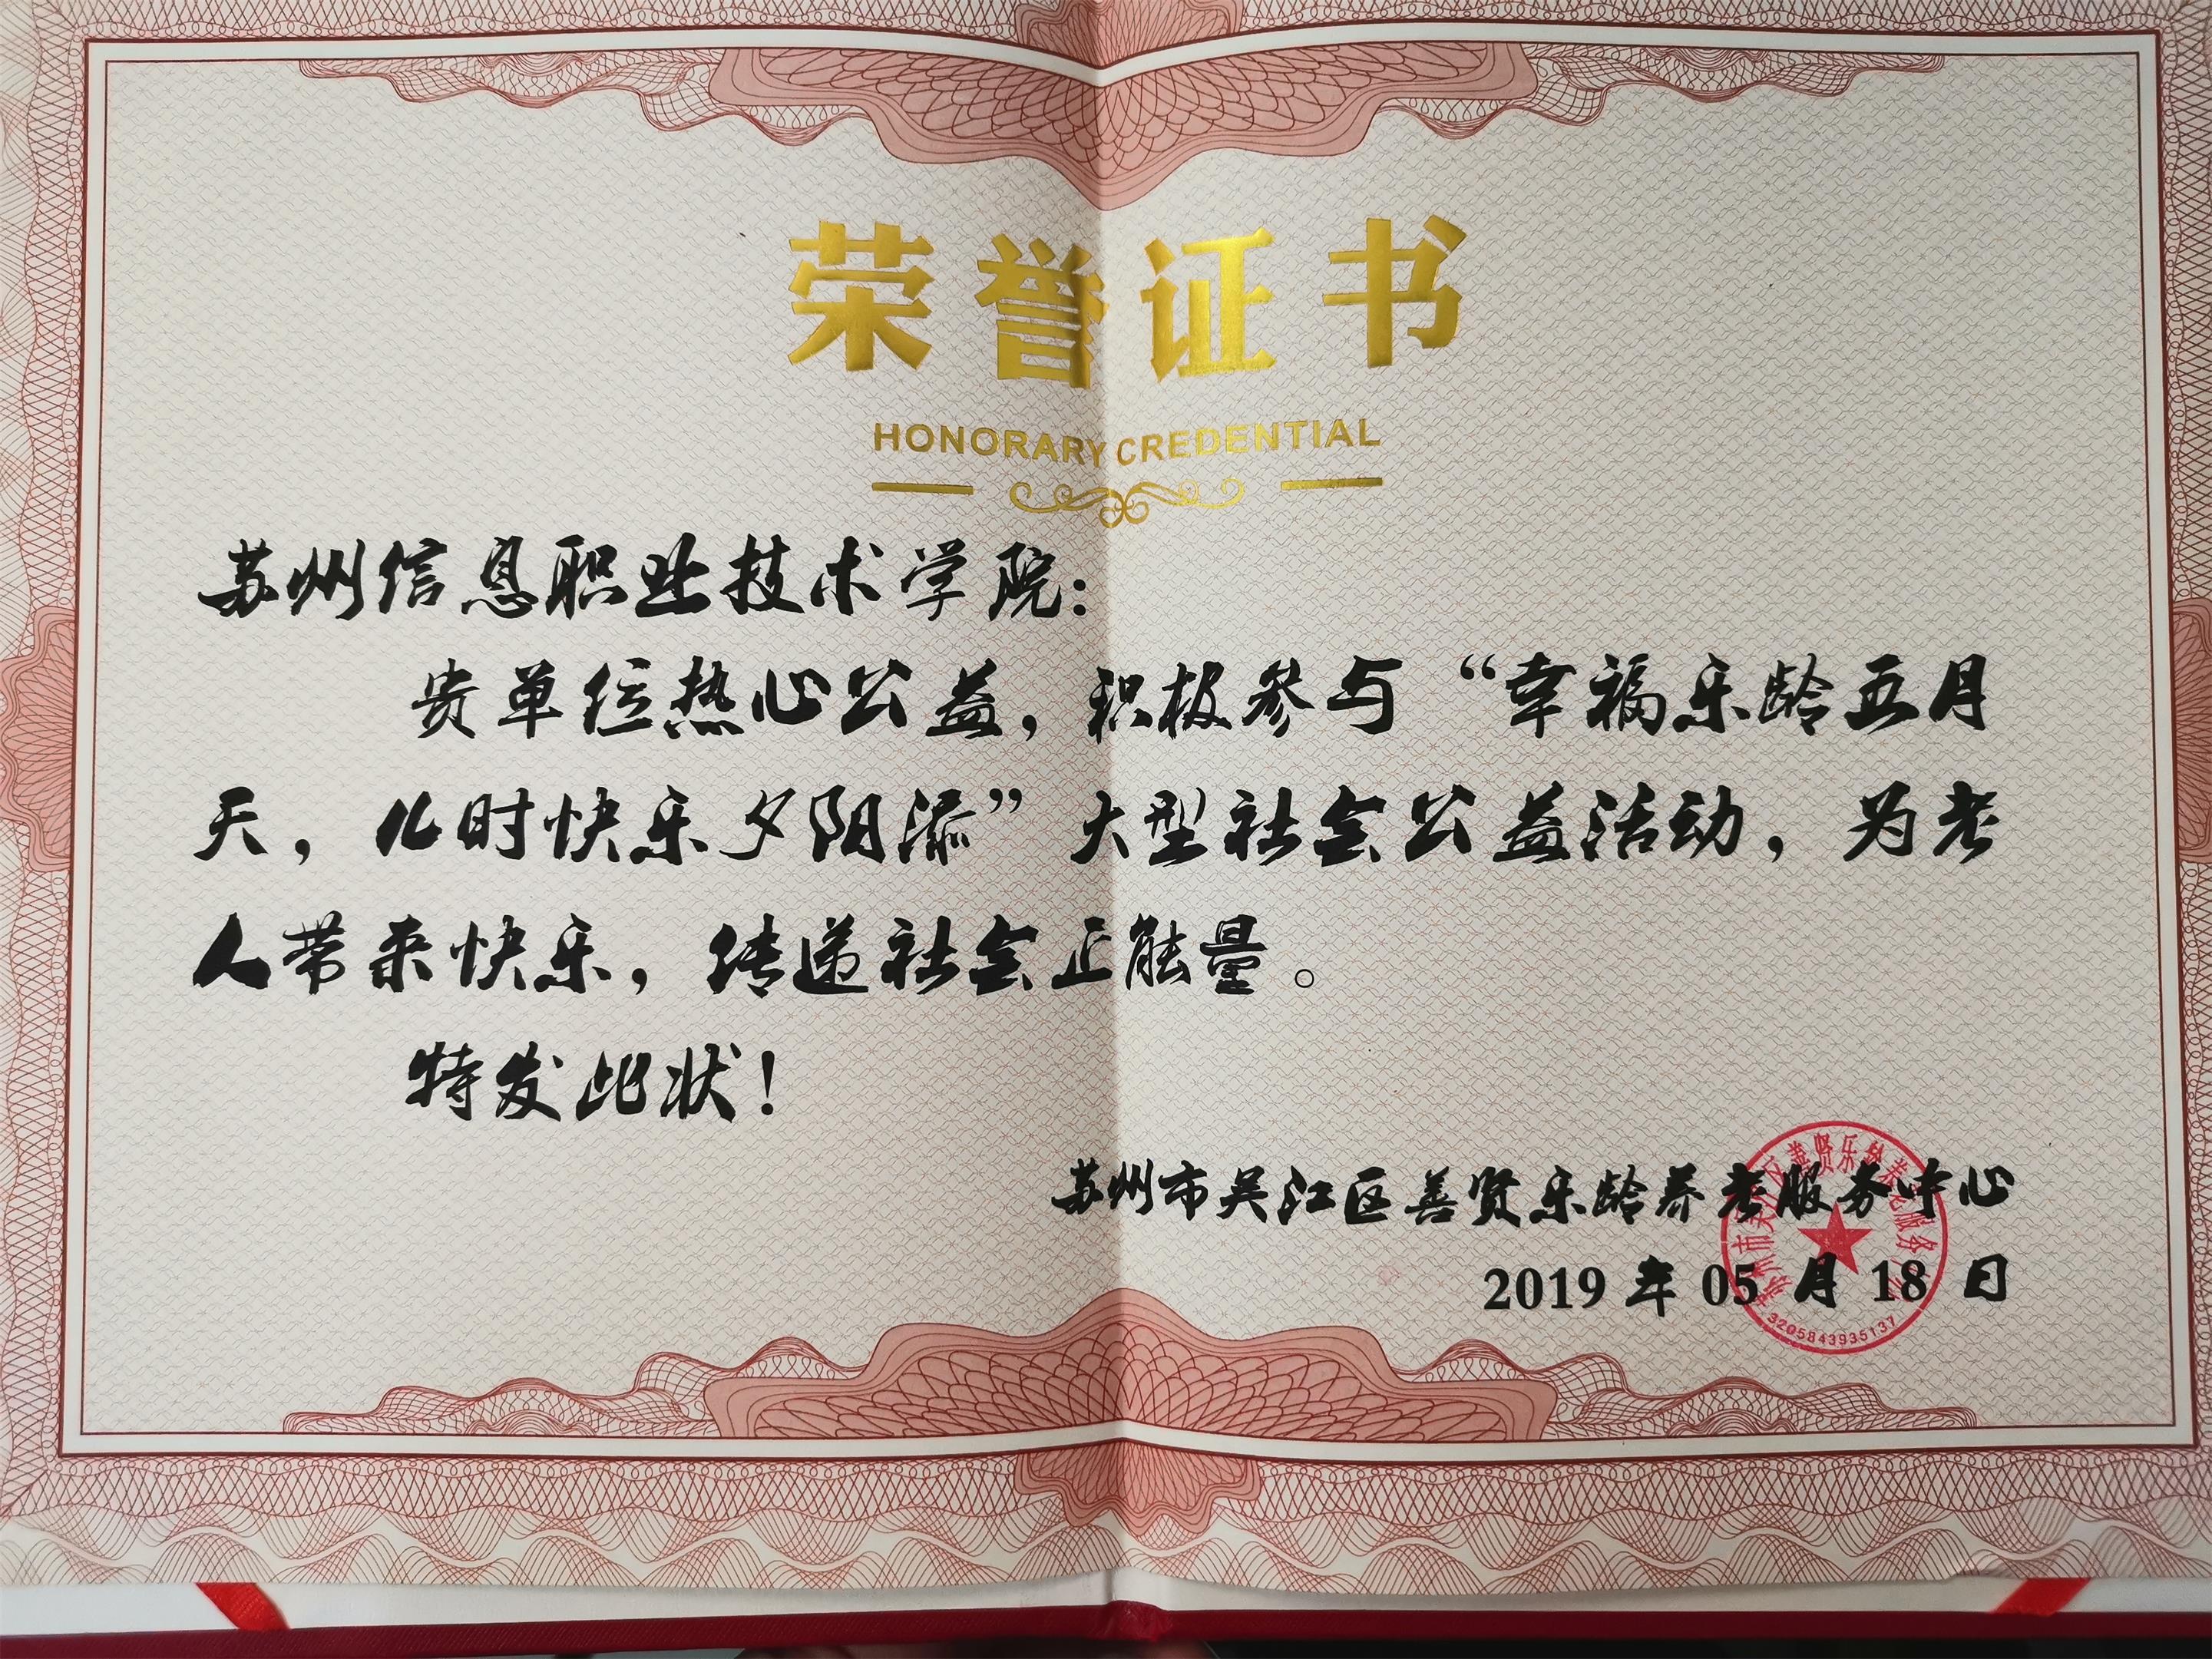 荣誉证书
HONORARY CREDENTIAL
苏州信息职业技术学院：
贵单位热心公益，积极参与“幸福乐龄五月
天，儿时快乐夕阳添”大型社会公益活动，为老
人带来快乐，传递社会正能量。
特发此状！
苏州市吴江区善贤乐龄养老服务中心
2019 年 05 月 18 日
3205843935137